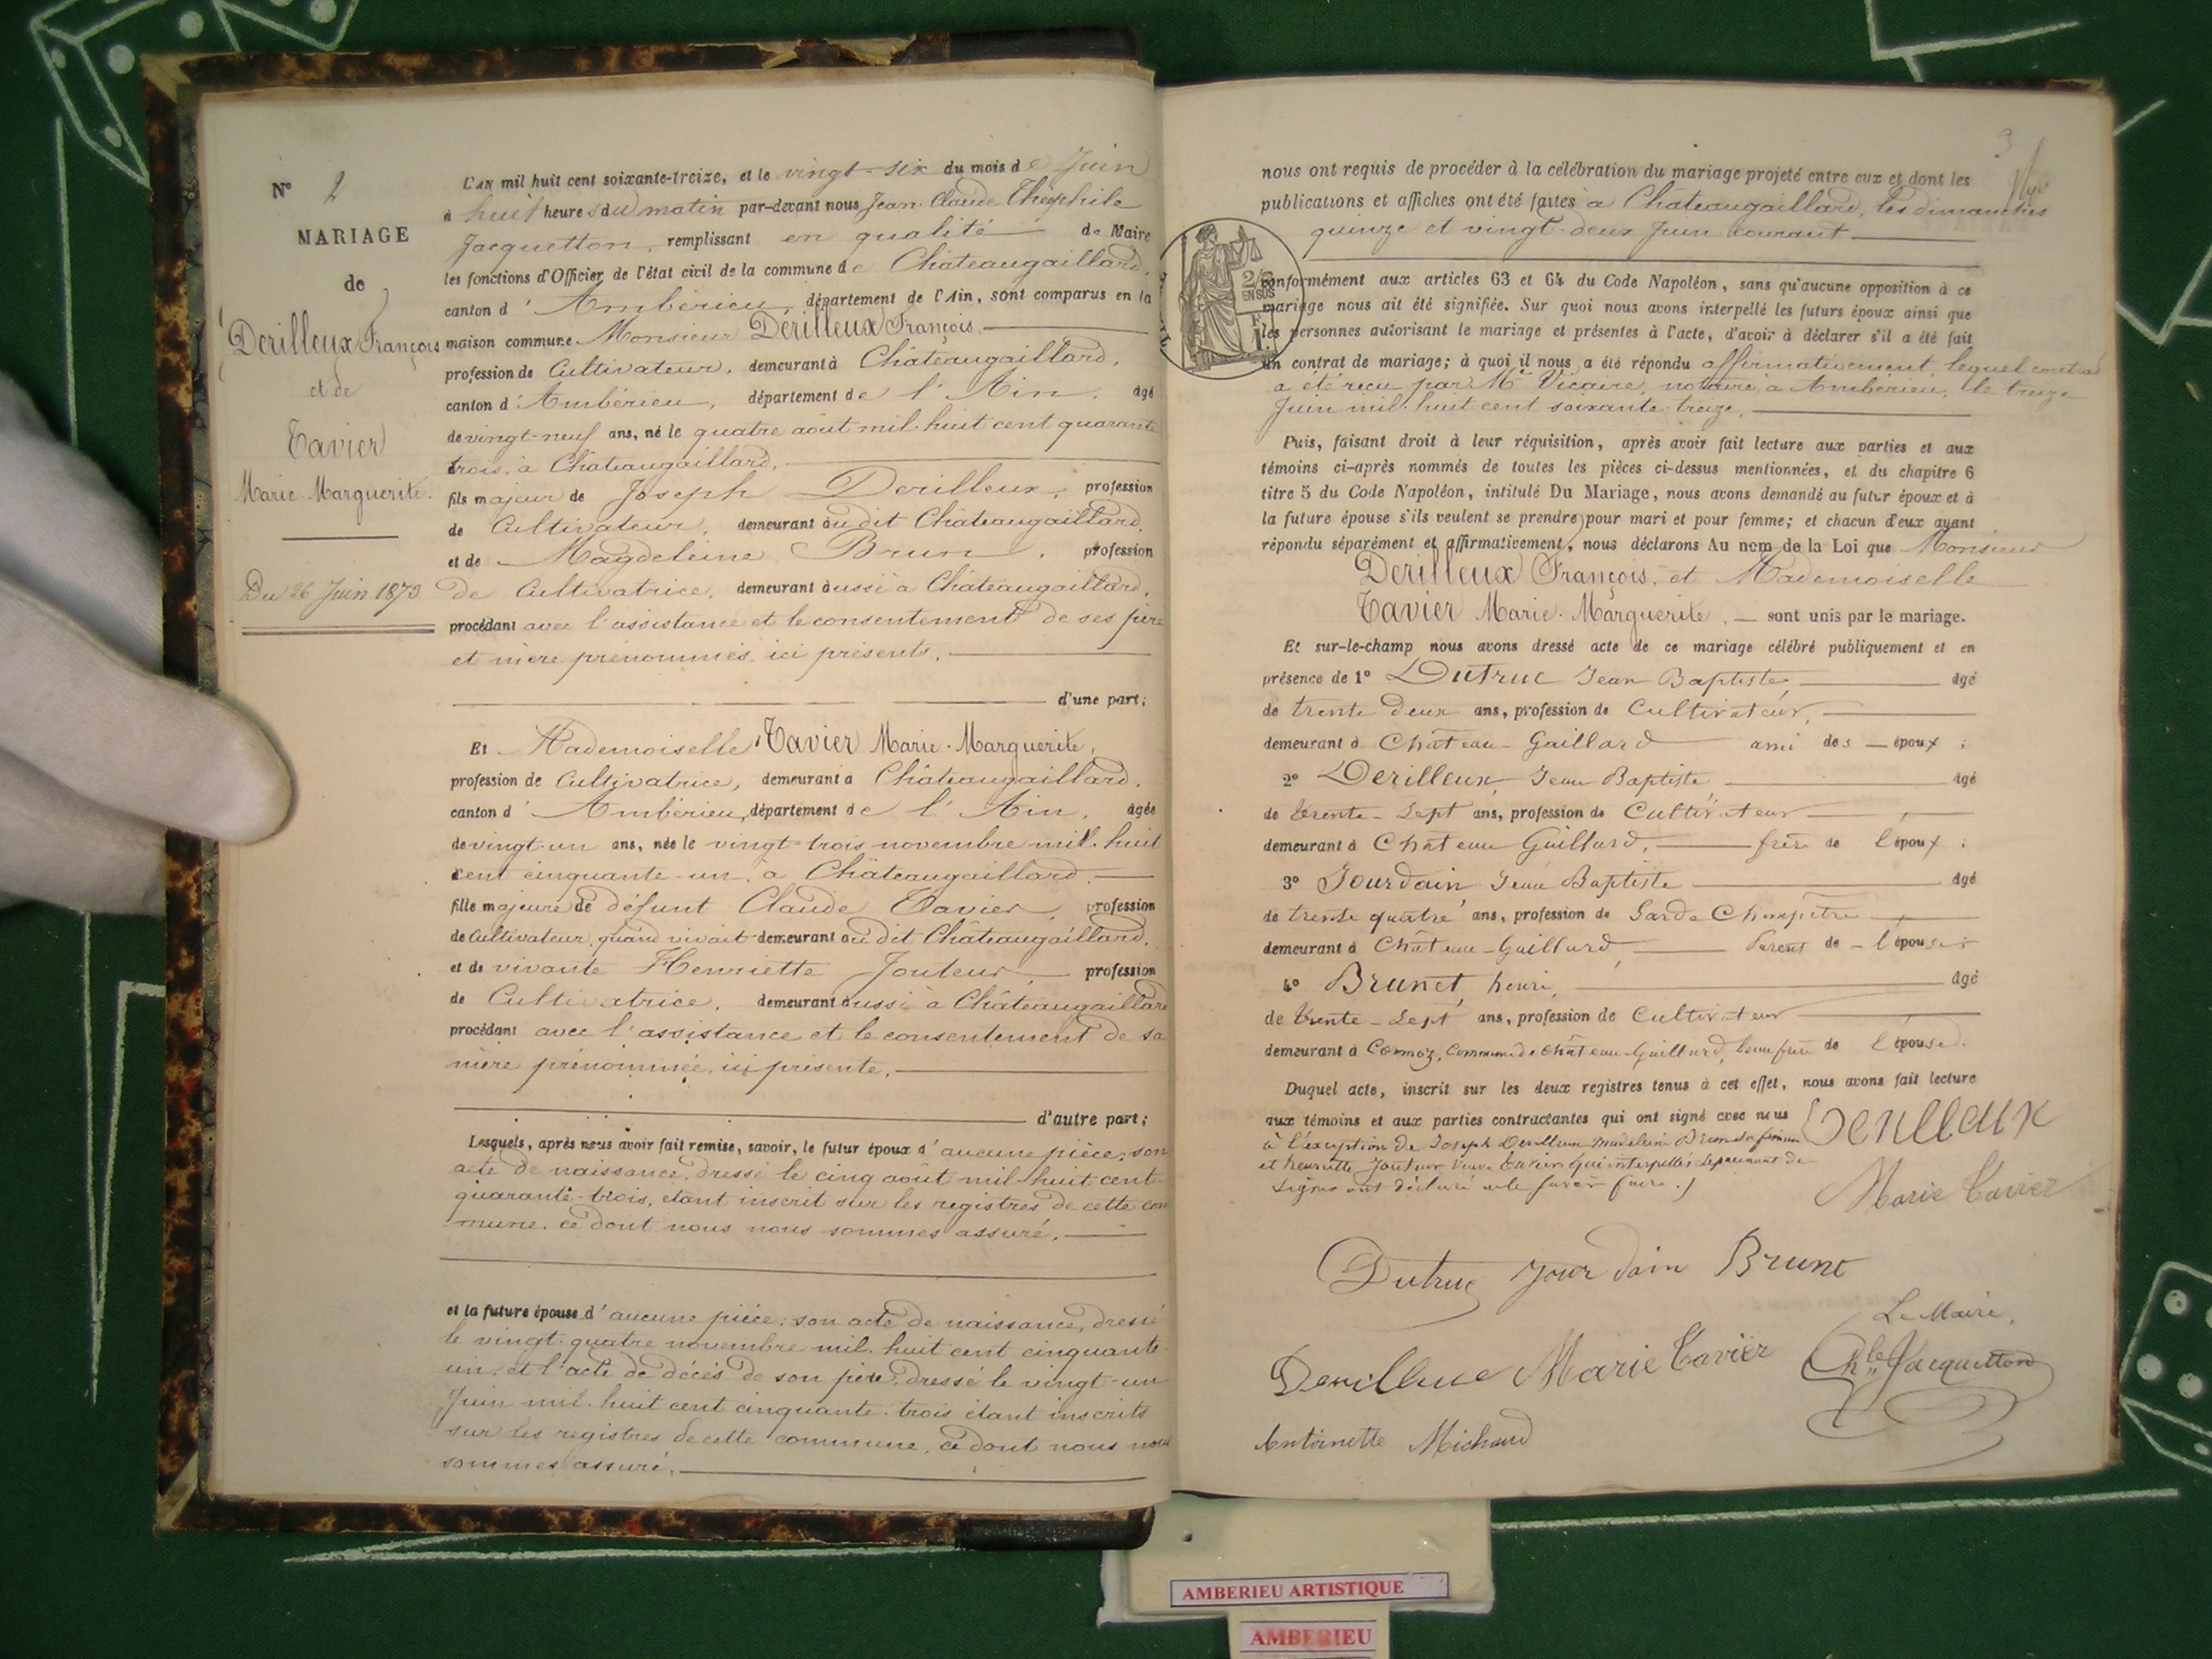 N° 2
MARIAGE
de
Derilleux François
et de
Tavier
Marie Marguerite.
Du 26 Juin 1873
L'AN mil huit cent soixante-treize, et le vingt-six du mois de Juin
à huit heures du matin par-devant nous Jean Claude Théophile
Jacquetton, remplissant en qualité de Maire
les fonctions d'Officier de l'état civil de la commune de Châteaugaillard,
canton d'Ambérieu, département de l'Ain, sont comparus en la
maison commune Monsieur Derilleux François
profession de Cultivateur, demeurant à Châteaugaillard,
canton d'Ambérieu, département de l'Ain, âgé
de vingt-neuf ans, né le quatre août mil-huit cent quarante
trois, à Châteaugaillard,
fils majeur de Joseph Derilleux, profession
de Cultivateur, demeurant au dit Châteaugaillard,
et de Magdeleine Brun, profession
de Cultivatrice, demeurant aussi à Châteaugaillard,
procédant avec l'assistance et le consentement de ses père
et mère prénommés, ici présents,
d'une part;
Et Mademoiselle Tavier Marie-Marguerite,
profession de Cultivatrice, demeurant à Châteaugaillard,
canton d'Ambérieu, département de l'Ain, âgée
de vingt-un ans, née le vingt-trois novembre mil-huit
cent cinquante-un, à Châteaugaillard
fille majeure de défunt Claude Tavier, profession
de Cultivateur, quand vivait demeurant au dit Châteaugaillard,
et de vivante Henriette Jouteur, profession
de Cultivatrice, demeurant aussi à Châteaugaillard
procédant avec l'assistance et le consentement de sa
mère prénommée, ici présente,
d'autre part;
Lesquels, après nous avoir fait remise, savoir, le futur époux d'aucune pièce, son
acte de naissance, dressé le cinq août mil-huit-cent-
quarante-trois, étant inscrit sur les registres de cette com
mune, ce dont nous nous sommes assuré,
et la future épouse d'aucune pièce; son acte de naissance, dressé
le vingt-quatre novembre mil-huit cent cinquante-
un, et l'acte de décès de son père, dressé le vingt-un
Juin mil-huit cent cinquante-trois étant inscrits
sur les registres de cette commune, ce dont nous nous
sommes assuré,
3
nous ont requis de procéder à la célébration du mariage projeté entre eux et dont les
publications et affiches ont été faites à Châteaugaillard, les dimanches
quinze et vingt-deux Juin courant
2/5
EN SUS
conformément aux articles 63 et 64 du Code Napoléon, sans qu'aucune opposition à ce
mariage nous ait été signifiée. Sur quoi nous avons interpellé les futurs époux ainsi que
les personnes autorisant le mariage et présentes à l'acte, d'avoir à déclarer s'il a été fait
un contrat de mariage; à quoi il nous a été répondu affirmativement, lequel contrat
a été reçu par Me Vicaire, notaire à Ambérieu, le treize
Juin mil-huit cent soixante-treize,
Puis, faisant droit à leur réquisition, après avoir fait lecture aux parties et aux
témoins ci-après nommés de toutes les pièces ci-dessus mentionnées, et du chapitre 6
titre 5 du Code Napoléon, intitulé Du Mariage, nous avons demandé au futur époux et à
la future épouse s'ils veulent se prendre pour mari et pour femme; et chacun d'eux ayant
répondu séparément et affirmativement, nous déclarons Au nom de la Loi que Monsieur
Derilleux François, et Mademoiselle
Tavier Marie-Marguerite, sont unis par le mariage.
Et sur-le-champ nous avons dressé acte de ce mariage célébré publiquement et en
présence de 1° Dutruc Jean Baptiste, âgé
de trente deux ans, profession de Cultivateur,
demeurant à Château-Gaillard ami des époux;
2° Derilleux, Jean Baptiste, âgé
de trente-sept ans, profession de Cultivateur
demeurant à Château Gaillard, frère de l'époux;
3° Jourdain Jean Baptiste âgé
de trente quatre ans, profession de Garde Champêtre
demeurant à Château-Gaillard, parent de l'épouse;
4° Brunet, henri, âgé
de trente-sept ans, profession de Cultivateur
demeurant à Cormoz, Commune de Château-Gaillard, beau frère de l'épouse.
Duquel acte, inscrit sur les deux registres tenus à cet effet, nous avons fait lecture
aux témoins et aux parties contractantes qui ont signé avec nous
à l'exception de Joseph Derilleux Madeleine Brun sa femme
et henriette Jouteur veuve Tavier qui interpellés séparément de
signer ont déclaré ne le savoir faire.
Derilleux
Marie Tavier
Dutruc Jourdain Brunet
Le Maire,
Derilleux Marie Tavier Jacquetton
Antoinette Michaud
AMBERIEU ARTISTIQUE
AMBERIEU